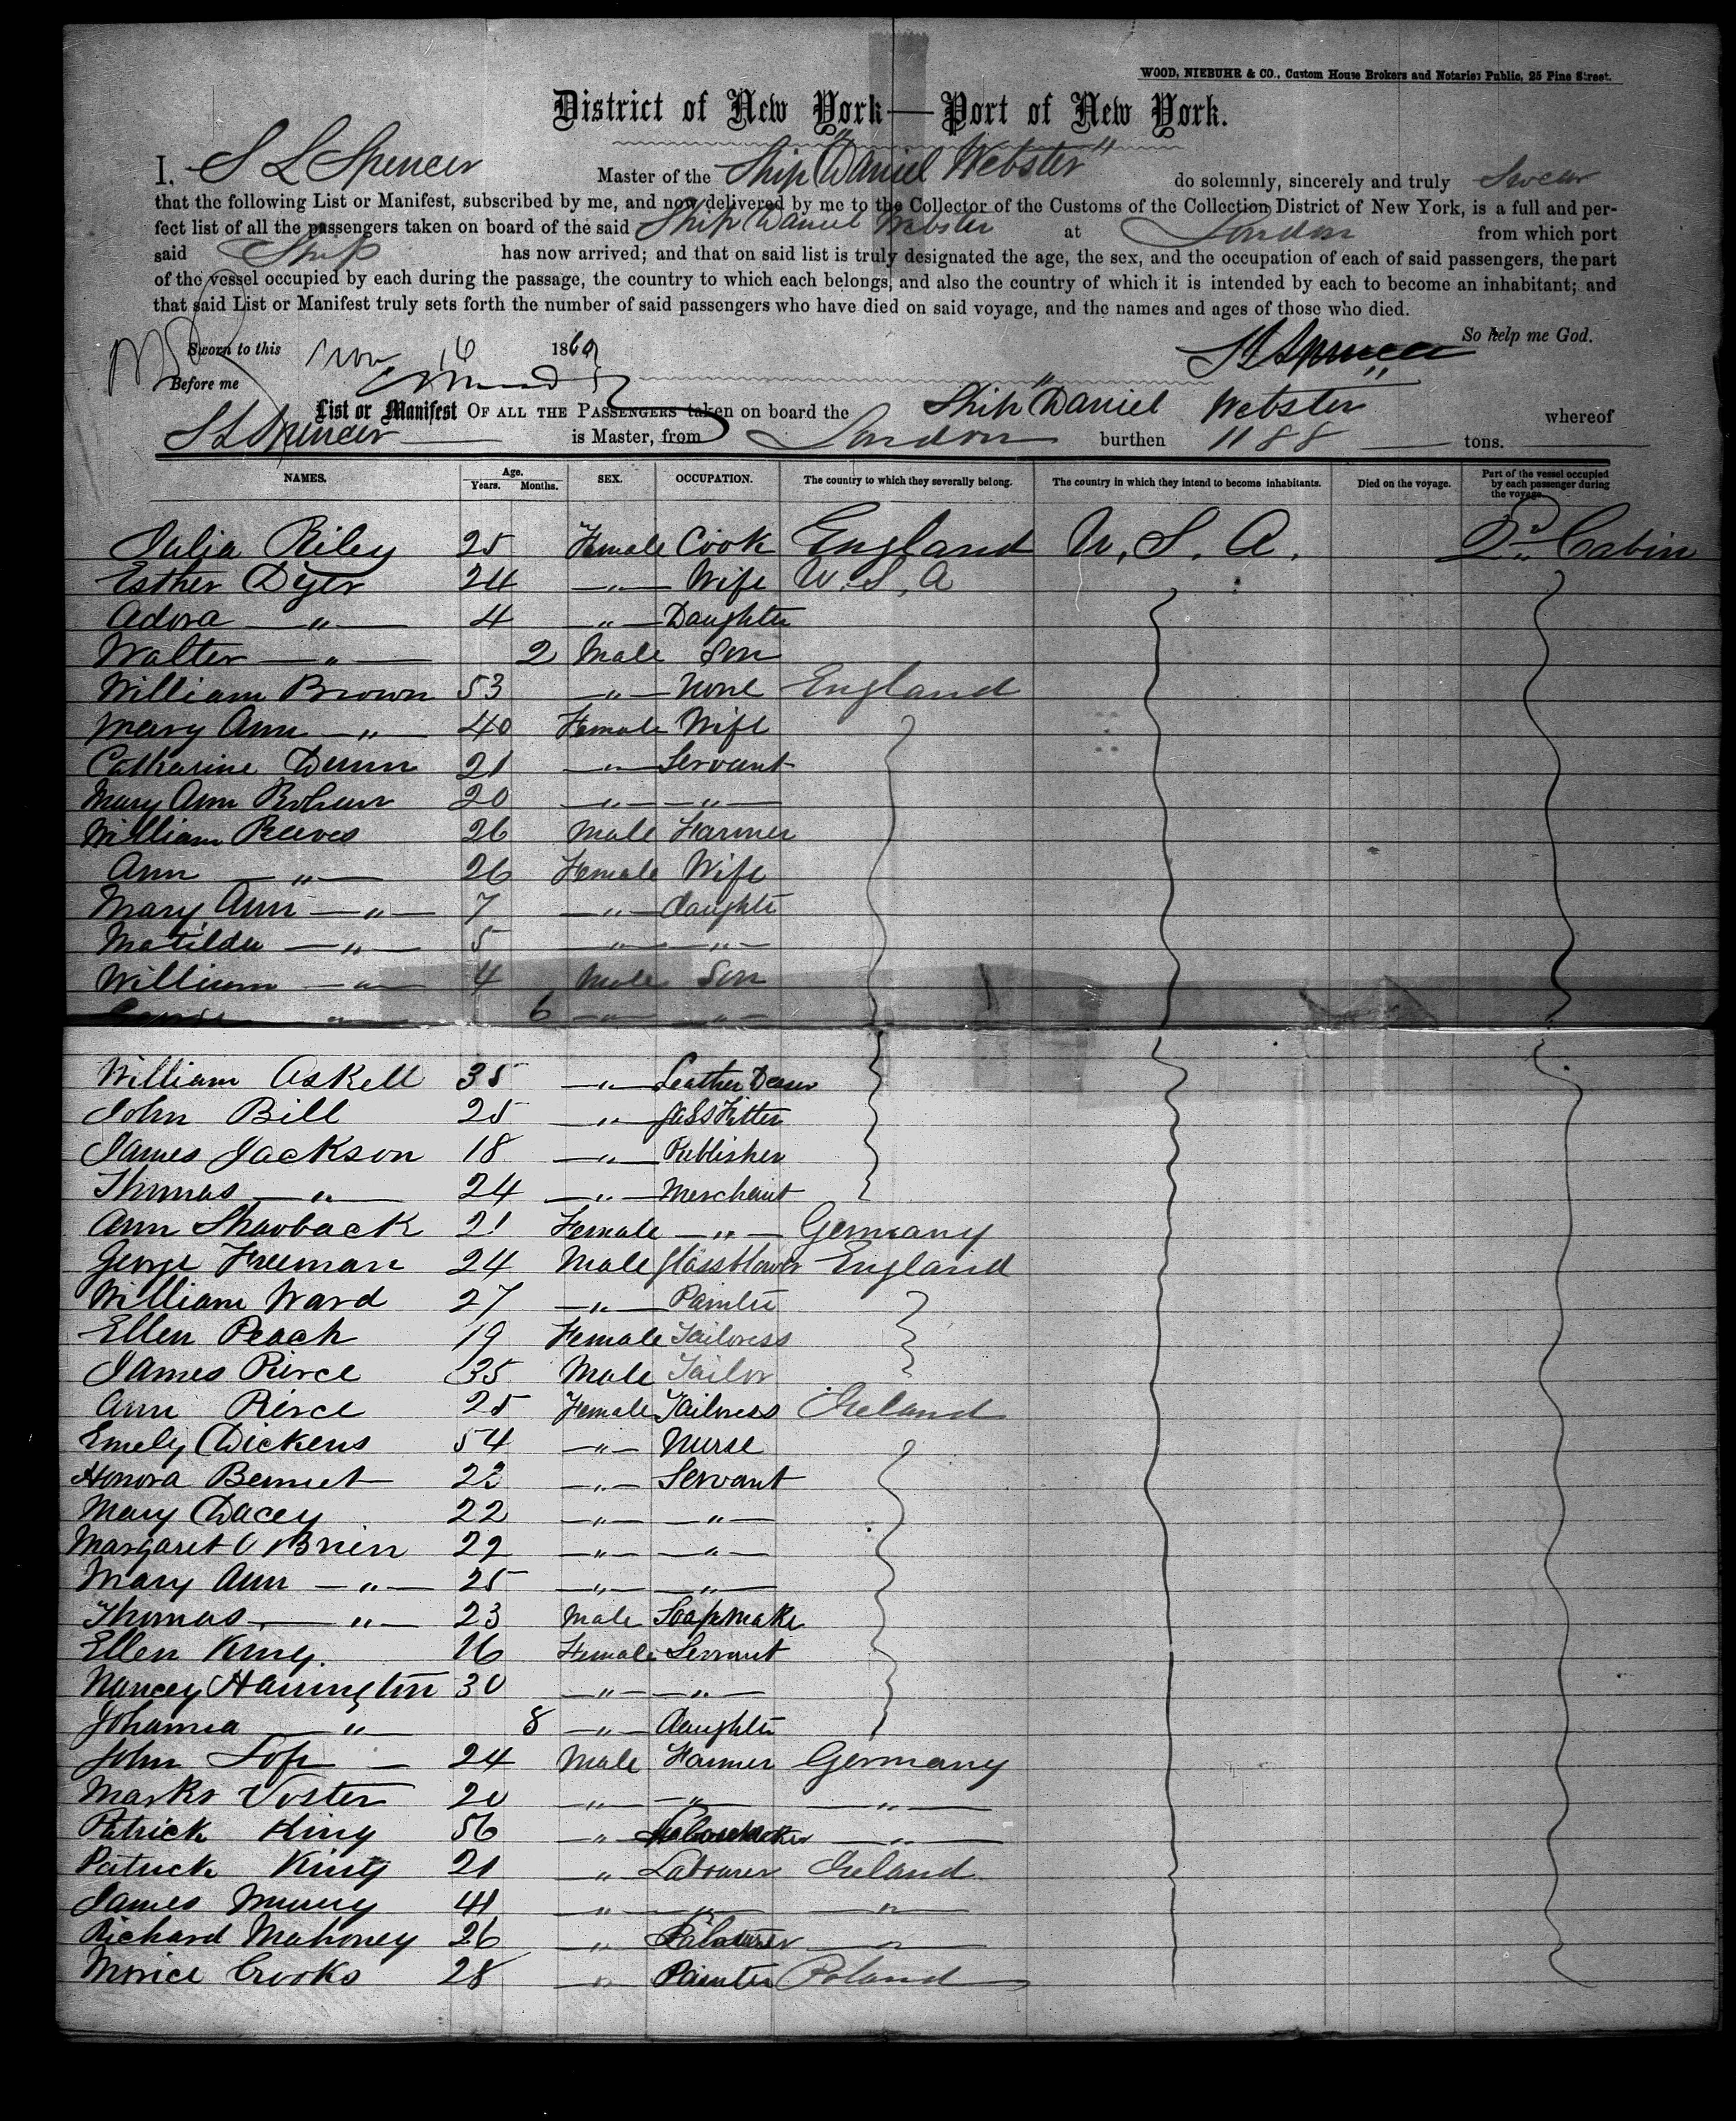 WOOD, NIEBUHR & CO., Custom House Brokers and Notaries Public, 25 Pine Street.
District of New York — Port of New York.
I. S L Spencer Master of the Ship "Daniel Webster" do solemnly, sincerely and truly Swear
that the following List or Manifest, subscribed by me, and now delivered by me to the Collector of the Customs of the Collection District of New York, is a full and per-
fect list of all the passengers taken on board of the said Ship Daniel Webster at London from which port
said Ship has now arrived; and that on said list is truly designated the age, the sex, and the occupation of each of said passengers, the part
of the vessel occupied by each during the passage, the country to which each belongs, and also the country of which it is intended by each to become an inhabitant; and
that said List or Manifest truly sets forth the number of said passengers who have died on said voyage, and the names and ages of those who died.
So help me God.
Sworn to this Nov 16 186 S L Spencer
Before me
List or Manifest OF ALL THE PASSENGERS taken on board the Ship "Daniel Webster whereof
S L Spencer is Master, from London burthen 1188 tons.
NAMES. Age. Years. Months. SEX. OCCUPATION. The country to which they severally belong. The country in which they intend to become inhabitants. Died on the voyage. Part of the vessel occupied by each passenger during the voyage.
Julia Riley 25 Female Cook England U. S. A. 2d Cabin
Esther Dyer 24 " Wife U. S. A
Adora " 4 " Daughter
Walter " 2 Male Son
William Brown 53 " None England
Mary Ann " 40 Female Wife
Catharine Dunn 21 " Servant
Mary Ann 20 " "
William Reeves 26 Male Farmer
Ann " 26 Female Wife
Mary Ann " 7 " daughter
Matilda " 5 " "
William " 4 Male Son
" 6 " "
William Askell 35 " Leather
John Bill 25 " Gas Fitter
James Jackson 18 " Publisher
Thomas " 24 " Merchant
Ann Shavback 21 Female " Germany
George Freeman 24 Male Glassblower England
William Ward 27 " Painter
Ellen Peach 19 Female Tailoress
James Pierce 35 Male Tailor
Ann Pierce 25 Female Tailoress Ireland
Emely Dickens 54 " Nurse
Honora Bennet 22 " Servant
Mary Dacey 22 " "
Margaret O Brien 22 " "
Mary Ann " 25 " "
Thomas " 23 Male Soapmake
Ellen King 16 Female Servant
Nancey Harrington 30 " "
Johanna " 8 " daughter
John 24 Male Farmer Germany
Marks Voster 20 " " "
Patrick King 56 " "
Patrick King 21 " Labourer Ireland
James 41 " " "
Richard Mahoney 26 " Labourer "
Morice Crooks 28 " Painter Poland